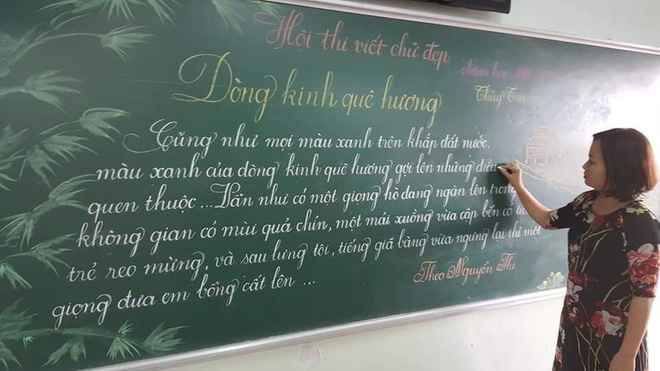 Hội thi viết chữ đẹp
Năm học
Dòng kinh quê hương
Thùy
Cũng như mọi màu xanh trên khắp đất nước,
màu xanh của dòng kinh quê hương gợi lên những điều
quen thuộc... Dần như có một giọng hò đang ngân lên trong
không gian có mùi quả chín, một mái xuồng vừa cập bến có
trẻ reo mừng, và sau lưng tôi, tiếng giã bàng vừa ngưng lại thì một
giọng đưa em bổng cất lên ...
Theo Nguyễn Thi